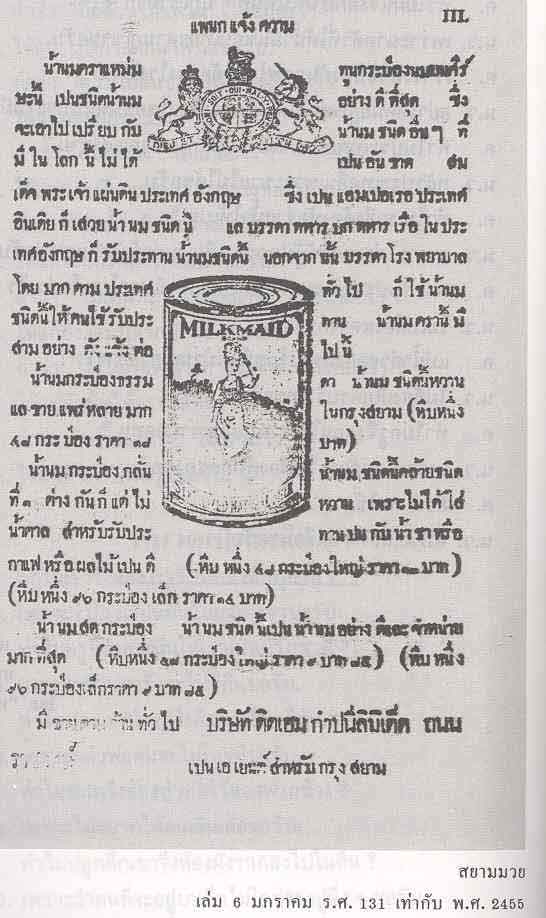 III.
แพนก แจ้ง ความ
น้ำนมตราแหม่ม ทูนกระป๋องนมเนคิร์
ษะนี้ เปนชนิดน้ำนม อย่าง ดี ที่สุด ซึ่ง
จะเอาไป เปรียบ กับ น้ำนม ชนิด อื่น ๆ ที่
มี ใน โลก นี้ ไม่ ได้ เปน อัน ขาด สม
เด็จ พระเจ้า แผ่นดิน ประเทศ อังกฤษ ซึ่ง เปน แอมเปอเรอ ประเทศ
อินเดีย ก็ เสวย น้ำ นม ชนิด นี้ แล บรรดา ทหาร บก ทหาร เรือ ใน ประ
เทศอังกฤษ ก็ รับประทาน น้ำนมชนิดนี้ นอกจาก นั้น บรรดา โรง พยาบาล
โดย มาก ตาม ประเทศ ทั่ว ไป ก็ ใช้ น้ำนม
ชนิดนี้ให้คนไข้รับประ ทาน น้ำนม ตรานี้ มี
สาม อย่าง ดังแจ้ง ต่อ ไป นี้
MILKMAID
น้ำนมกระป๋องธรรม ดา น้ำนม ชนิดนี้หวาน
แล ขาย แพร่ หลาย มาก ในกรุงสยาม (หีบหนึ่ง
๔๘ กระ ป๋อง ราคา ๑๘ บาท)
น้ำนม กระป๋อง กลั่น น้ำนม ชนิดนี้คล้ายชนิด
ที่ ๑ ต่าง กัน ก็ แต่ ไม่ หวาน เพราะไม่ได้ ใส่
น้ำตาล สำหรับรับประ ทาน ปน กับ น้ำ ชา หรือ
กาแฟ หรือ ผลไม้ เปน ดี (หีบ หนึ่ง ๔๘ กระป๋องใหญ่ ราคา บาท)
(หีบ หนึ่ง ๙๖ กระป๋อง เล็ก ราคา ๑๕ บาท)
น้ำ นม สด กระป๋อง น้ำ นม ชนิด นี้เปน น้ำนม อย่าง ดีแล จำหน่าย
มาก ที่สุด (หีบหนึ่ง ๔๘ กระป๋อง ใหญ่ ราคา ๙ บาท ๘๕) (หีบ หนึ่ง
๙๖ กระป๋องเล็กราคา ๙ บาท ๘๕)
มี ขายตาม ร้าน ทั่ว ไป บริษัท ดิตเฮม กำปนีลิมิเต็ด ถนน
เปน เอ เยนต์ สำหรับ กรุง สยาม
สยามมวย
เล่ม 6 มกราคม ร.ศ. 131 เท่ากับ พ.ศ. 2455